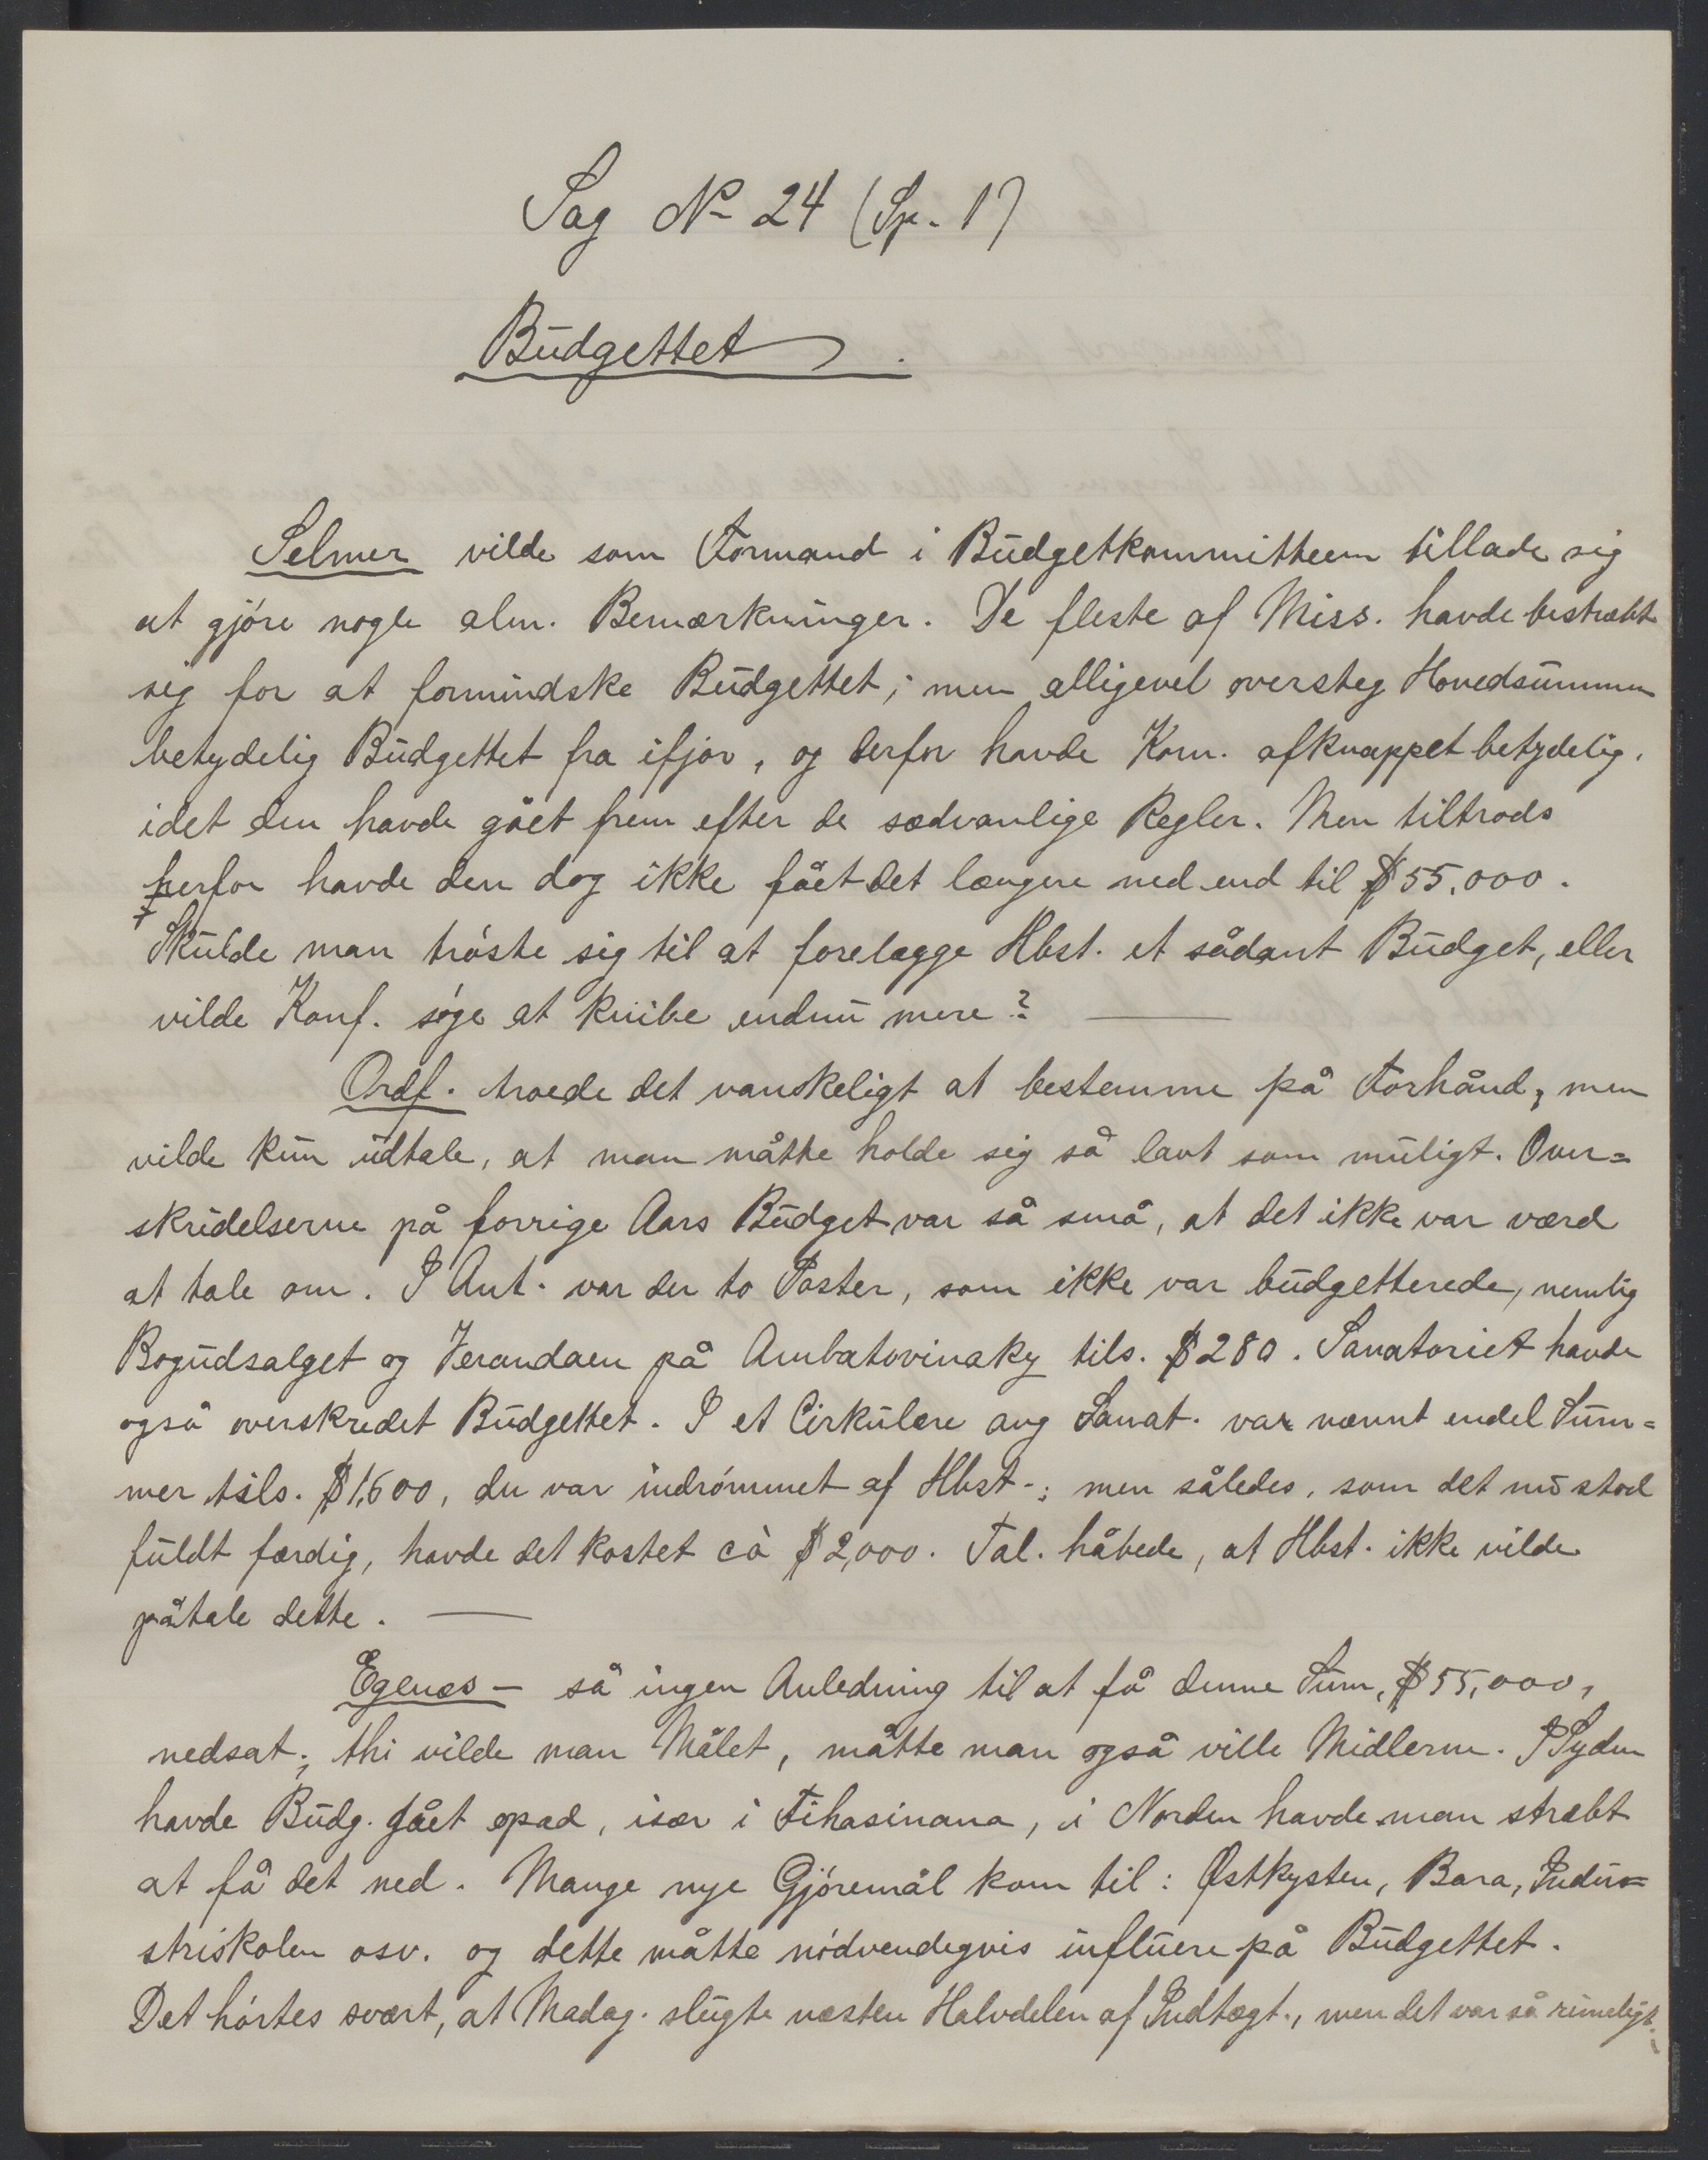 Sag No 24 (Sp. 1)
Budgettet.
Selmer vilde som Formand i Budgetkommitteen tillade sig
at gjöre nogle alm. Bemærkninger. De fleste af Miss. havde bestræbt
sig for at formindske Budgettet; men alligevel oversteg Hovedsummen
betydelig Budgettet fra ifjor, og derfor havde Kom. afknappet betydelig,
idet den havde gået frem efter de sædvanlige Regler. Men tiltrods
herfor havde den dog ikke fået det længere ned end til $ 55,000.
Skulde man tröste sig til at forelægge Hbst. et sådant Budget, eller
vilde Konf. söge at knibe endnu mere? —
Ordf. troede det vanskeligt at bestemme på Forhånd, men
vilde kun udtale, at man måtte holde sig så lavt som muligt. Over=
skridelserne på forrige Aars Budget var så små, at det ikke var værd
at tale om. I Ant. var der to Poster, som ikke var budgetterede, nemlig
Bogudsalget og Verandaen på Ambatovinaky tils. $ 280. Sanatoriet havde
også overskredet Budgettet. I et Cirkulære ang Sanat. var nævnt endel Sum=
mer tils. $ 1,600, der var indrömmet af Hbst.; men således, som det nu stod
fuldt færdig, havde det kostet cà $ 2,000. Tal. håbede, at Hbst. ikke vilde
påtale dette. —
Egenæs — så ingen Anledning til at få denne Sum, $ 55,000,
nedsat; thi vilde man Målet, måtte man også ville Midlerne. I Syden
havde Budg. gået opad, især i Fihasinana, i Norden havde man stræbt
at få det ned. Mange nye Gjöremål kom til: Østkysten, Bara, Indu=
striskolen osv. og dette måtte nödvendigvis influere på Budgettet.
Det hörtes svært, at Madag. slugte næsten Halvdelen af Indtægt., men det var så rimeligt;